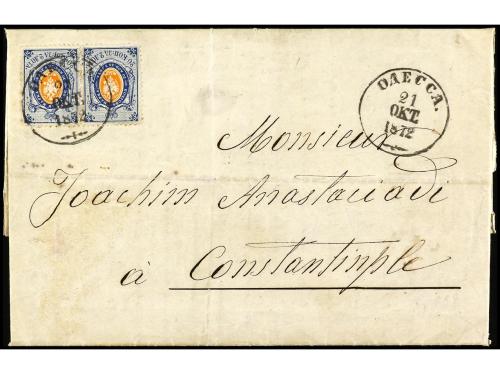 ОДЕССА.
21
ОКТ.
1872
1
ОКТ.
1872
1
Monsieur
Joachim Anastaciadi
à Constantinple